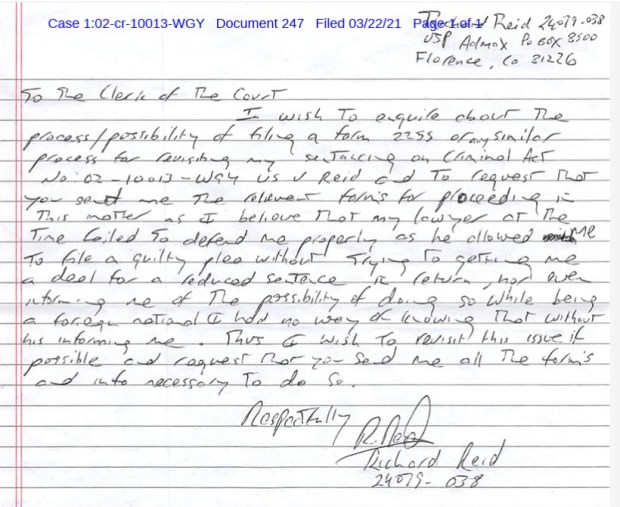 Case 1:02-cr-10013-WGY Document 247 Filed 03/22/21 Page 1 of 1
Richard Reid 24079-038
USP Admax Po Box 8500
Florence, Co 81226
To The Clerk of The Court
I wish To enquire about The
process/possibility of filing a form 2255 or any similar
process for revisiting my sentancing on Criminal Act
No: 02-10013-WGY US v Reid and To request That
you send me The relevent forms for proceeding in
This matter as I believe That my lawyer at The
Time failed To defend me properly as he allowed me
To file a guilty plea without Trying To getting me
a deal for a reduced sentence in return, nor even
informing me of The possibility of doing so while being
a foreign national I had no way of knowing That without
his informing me. Thus I wish To revisit this issue if
possible and request That you send me all The form's
and info necessary To do so.
Respectfully R. Reid
Richard Reid
24079-038